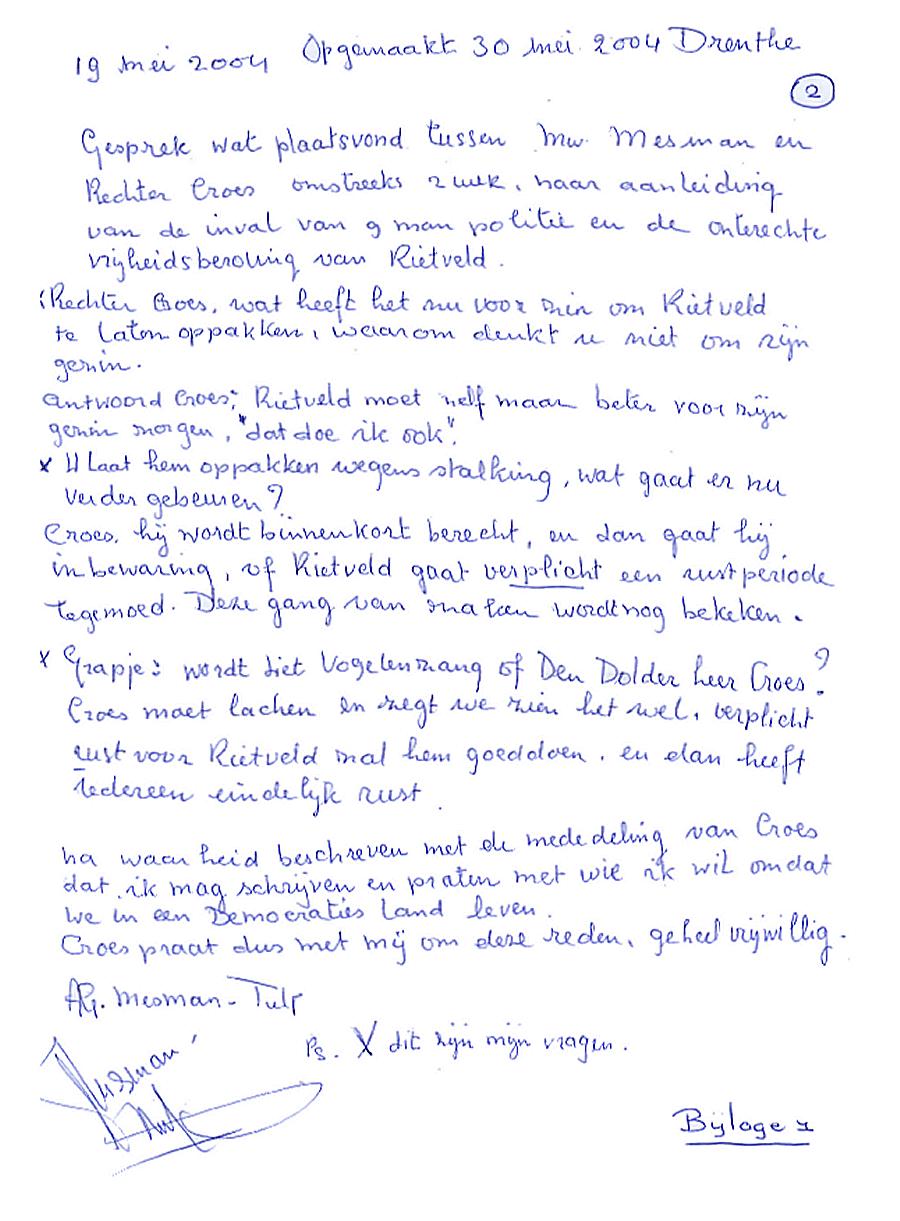 19 mei 2004 Opgemaakt 30 mei 2004 Drenthe
2
Gesprek wat plaatsvond tussen Mw. Mesman en
Rechter Croes omstreeks 2 uur, naar aanleiding
van de inval van 9 man politie en de onterechte
vrijheidsberoving van Rietveld.
Rechter Croes, wat heeft het nu voor zin om Rietveld
te laten oppakken, waarom denkt u niet om zijn
gezin.
Antwoord Croes; Rietveld moet zelf maar beter voor zijn
gezin zorgen, "dat doe ik ook".
x U laat hem oppakken wegens stalking, wat gaat er nu
verder gebeuren?
Croes. hij wordt binnenkort berecht, en dan gaat hij
inbewaring, of Rietveld gaat verplicht een rustperiode
tegemoed. Deze gang van zaken wordt nog bekeken.
x Grapje: wordt het Vogelenzang of Den Dolder heer Croes?
Croes moet lachen en zegt we zien het wel, verplicht
rust voor Rietveld zal hem goeddoen, en dan heeft
iedereen eindelijk rust.
na waarheid beschreven met de mededeling van Croes
dat ik mag schrijven en praten met wie ik wil omdat
we in een Democraties land leven.
Croes praat dus met mij om deze reden, geheel vrijwillig.
Mesman - Tulp
Mesman
Ps. X dit zijn mijn vragen.
Bijlage